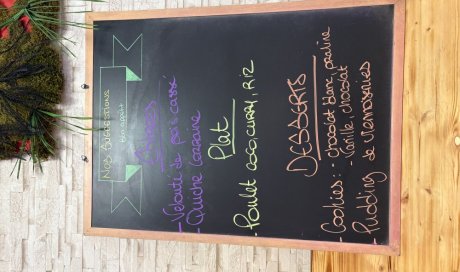 Nos suggestions
Bon appétit
Entrées
- Velouté de pois cassé
- Quiche Lorraine
Plat
- Poulet coco, curry, riz
DESSERTS
- Cookies : - chocolat blanc, praline
- Vanille, chocolat
- Pudding de viennoiseries